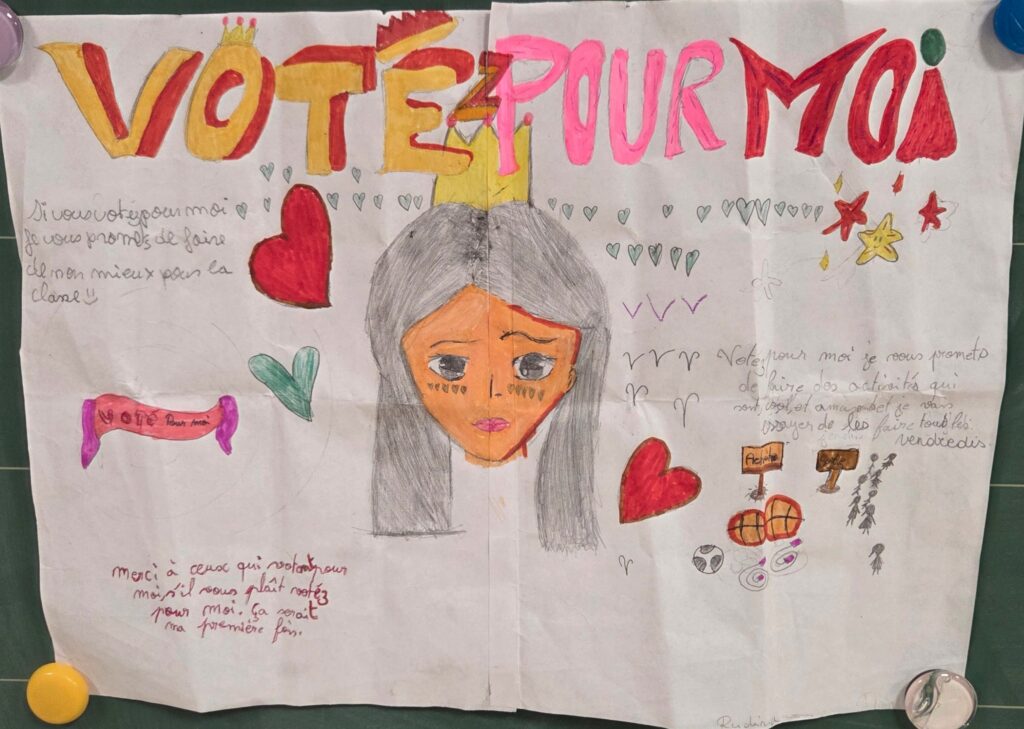 VOTÉZ POUR MOI
Si vous votéz pour moi
je vous promets de faire
de mon mieux pour la
classe
VOTÉ Pour moi
Votez pour moi je vous promets
de faire des activités qui
sont et amusant et je vais
essayer de les faire tout les
vendredis.
merci à ceux qui votent pour
moi, s'il vous plaît votéz
pour moi. Ça serait
ma première fois.